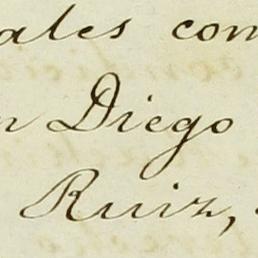 ales con
n Diego
Ruiz,